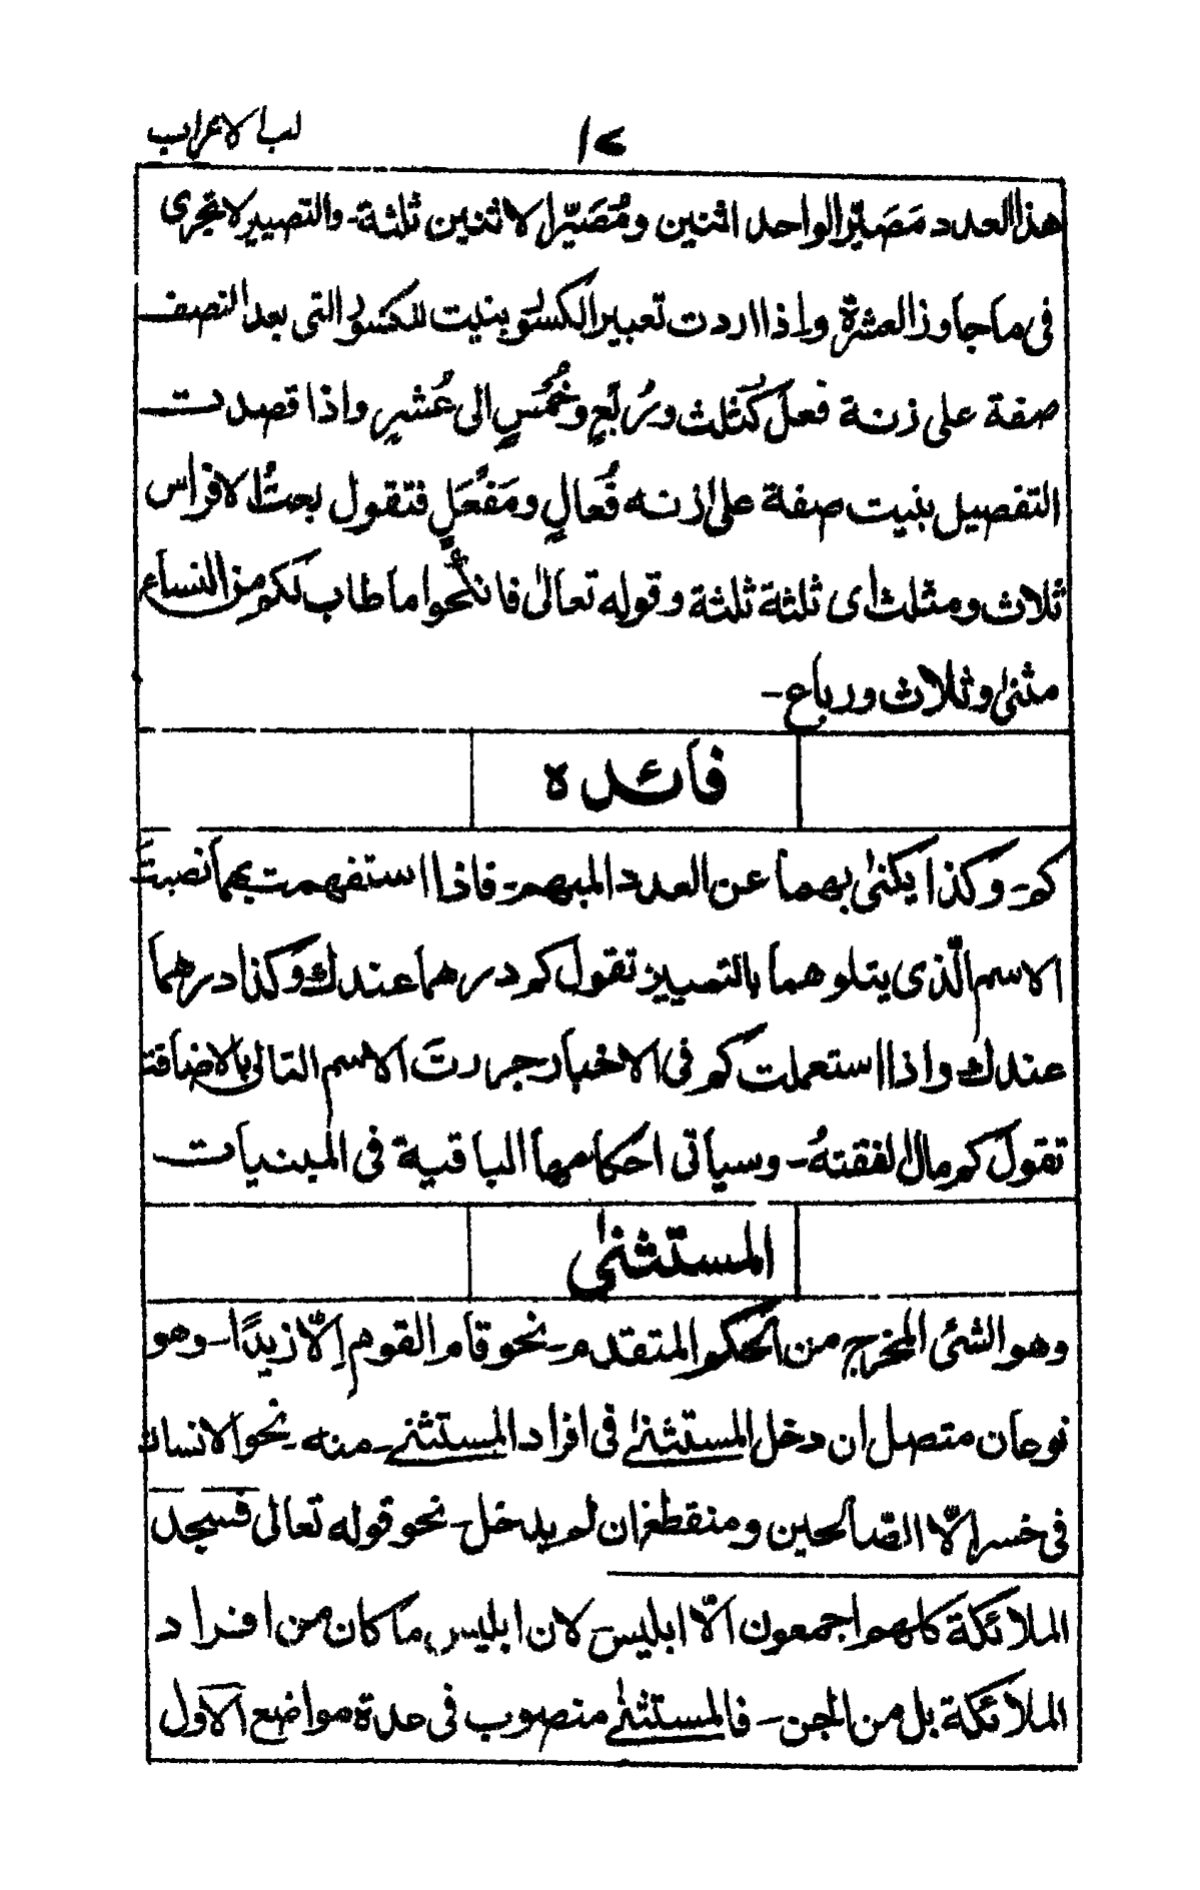 لب الاعراب
١٧
هذا العدد مَصَيِّر الواحد اثنين ومُصَيِّر الاثنين ثلثة۔ والتصيير لا تجرى
فى ما جاوز العشرة واذا اردت تعبير الكسور بنيت للكسور التى بعد النصف
صفة على زنة فُعل كثُلث ورُبُعٍ وخُمُسٍ الى عُشيرٍ واذا قصدت
التفصيل بنيت صفة على زنه فُعالٍ ومَفْعَلٍ فتقول بعتُ الافراس
ثلاث ومثلث اى ثلثة ثلثة وقوله تعالىٰ فانكحوا ما طاب لكم من النساء
مثنىٰ وثلاث ورباع۔
فائده
كم۔ وكذا يكنىٰ بهما عن العدد المبهم۔ فاذا استفهمت بهما نصبتَ
الاسم الّذى يتلوهما بالتمييز تقول كم درهما عندك وكذا درهما
عندك واذا استعملت كم فى الاخبار جررتَ الاسم التالى بالاضافة
تقول كم مال انفقتهُ۔ وسياتى احكامها الباقية فى المبنيات
المستثنىٰ
وهو الشئى المخرج من الحكم المتقدم۔ نحو قام القوم اِلّا زيدًا۔ وهو
نوعان متصل ان دخل المستثنىٰ فى افراد المستثنے۔ منه۔ نحو الانسان
فى خسر اِلّا الصّالحين ومنقطع ان لم يدخل۔ نحو قوله تعالى فسجد
الملائكة كلهم اجمعون الّا ابليس۔ لان ابليس ما كان من افراد
الملائكة بل من الجن۔ فالمستثنىٰ منصوب فى عدة مواضع الاول